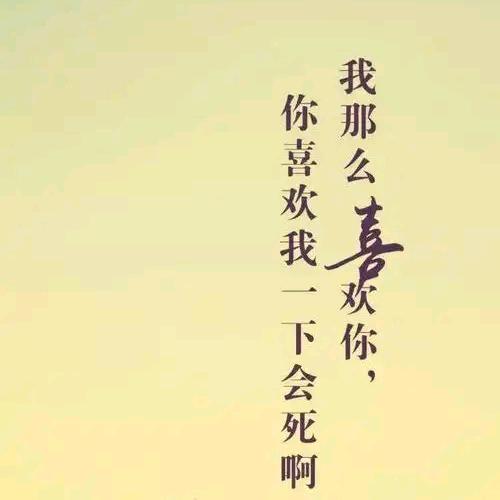 我那么喜欢你，
你喜欢我一下会死啊